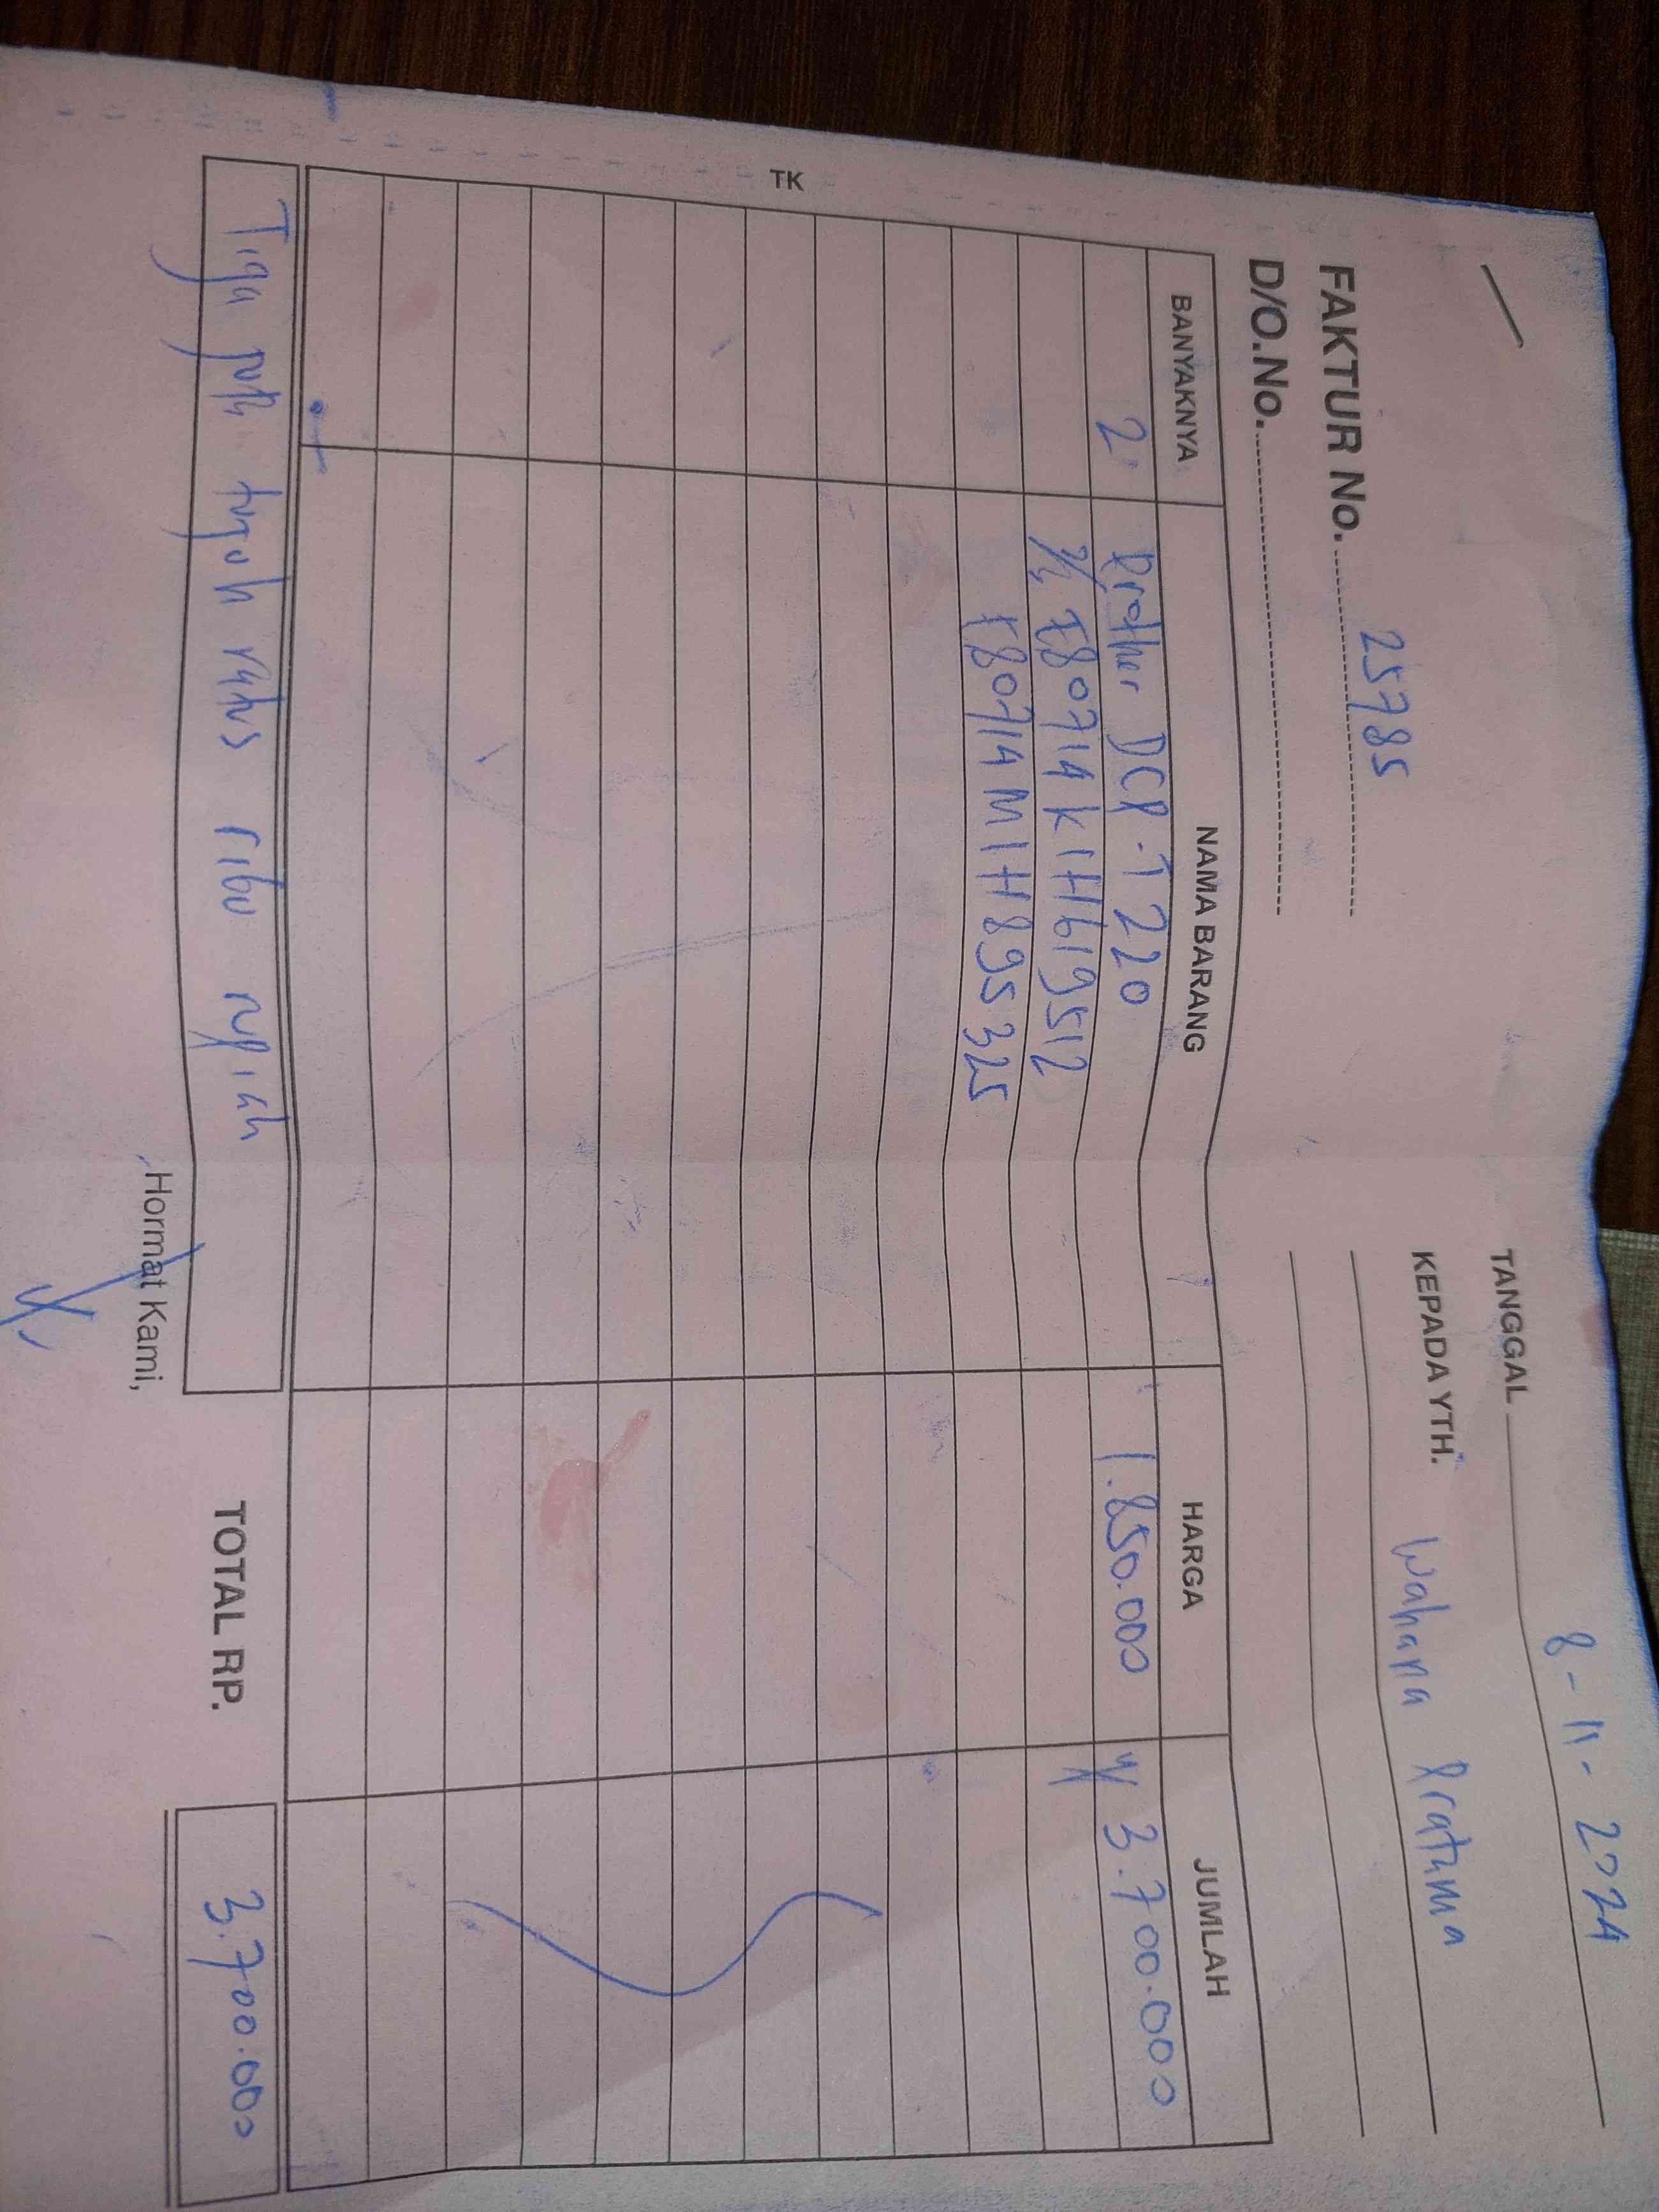 TANGGAL 8-11-2024
FAKTUR No. 25785
KEPADA YTH. Wahana Pratama
D/O.No.
BANYAKNYA NAMA BARANG HARGA JUMLAH
2 Brother DCP-T220 1.850.000 3.700.000
E80714K1H619512
E80714M1H895325
TK
Tiga juta tujuh ratus ribu rupiah
TOTAL RP. 3.700.000
Hormat Kami,